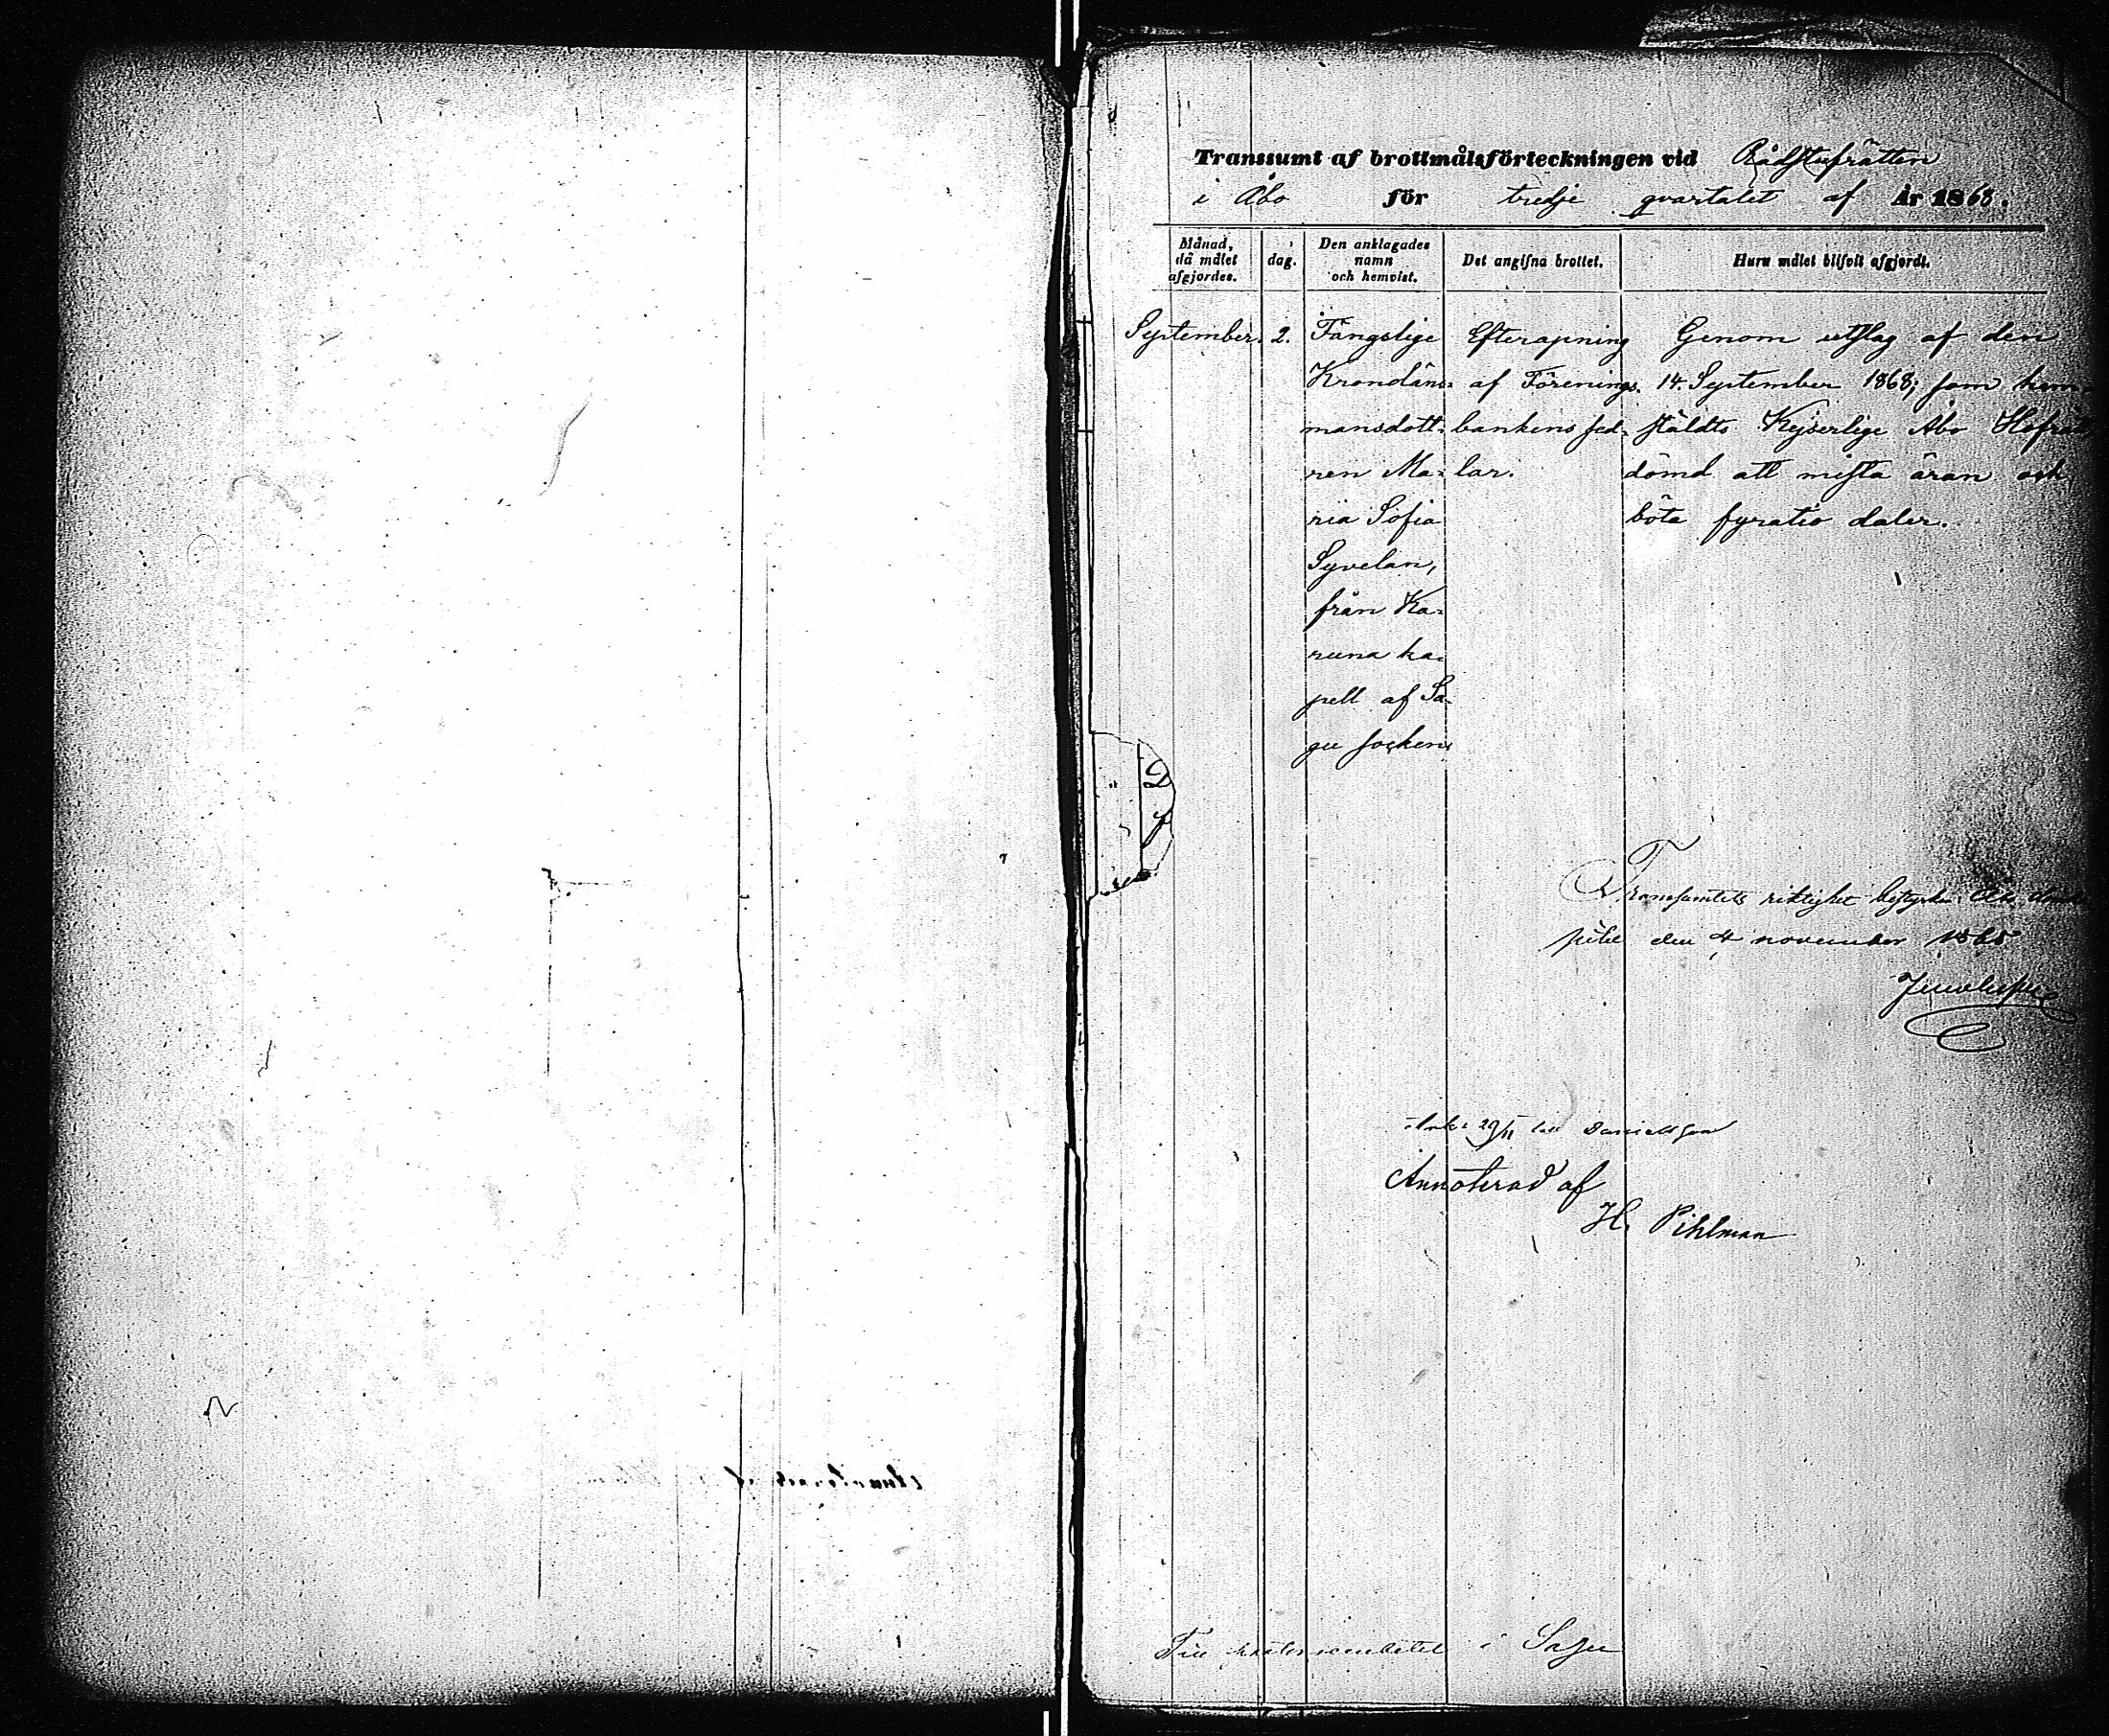 Transsumt af brottmålsförteckningen vid Rådstufrätten
i Åbo för tredje qvartalet af År 1868.
Månad, då målet afgjordes.
dag.
Den anklagades namn och hemvist.
Det angifna brottet.
Huru målet blifvit afgjordt.
September. 2.
Fängslige
Krondäns-
mansdott-
ren Ma-
ria Sofia
Syvelan,
från Ka-
runa ka-
pell af Sa-
gu socken.
Efterapning
af Förenings-
bankens sed-
lar.
Genom utslag af den
14. September 1868, som hem-
stäldts Kejserlige Åbo Hofrätt
dömd att mista äran och
böta fyratio daler.
Transsumtets riktighet bestyrker. Åbo
den 4 november 1868
29/11
Annoterad af
H. Pihlman
D
Till i Sagu